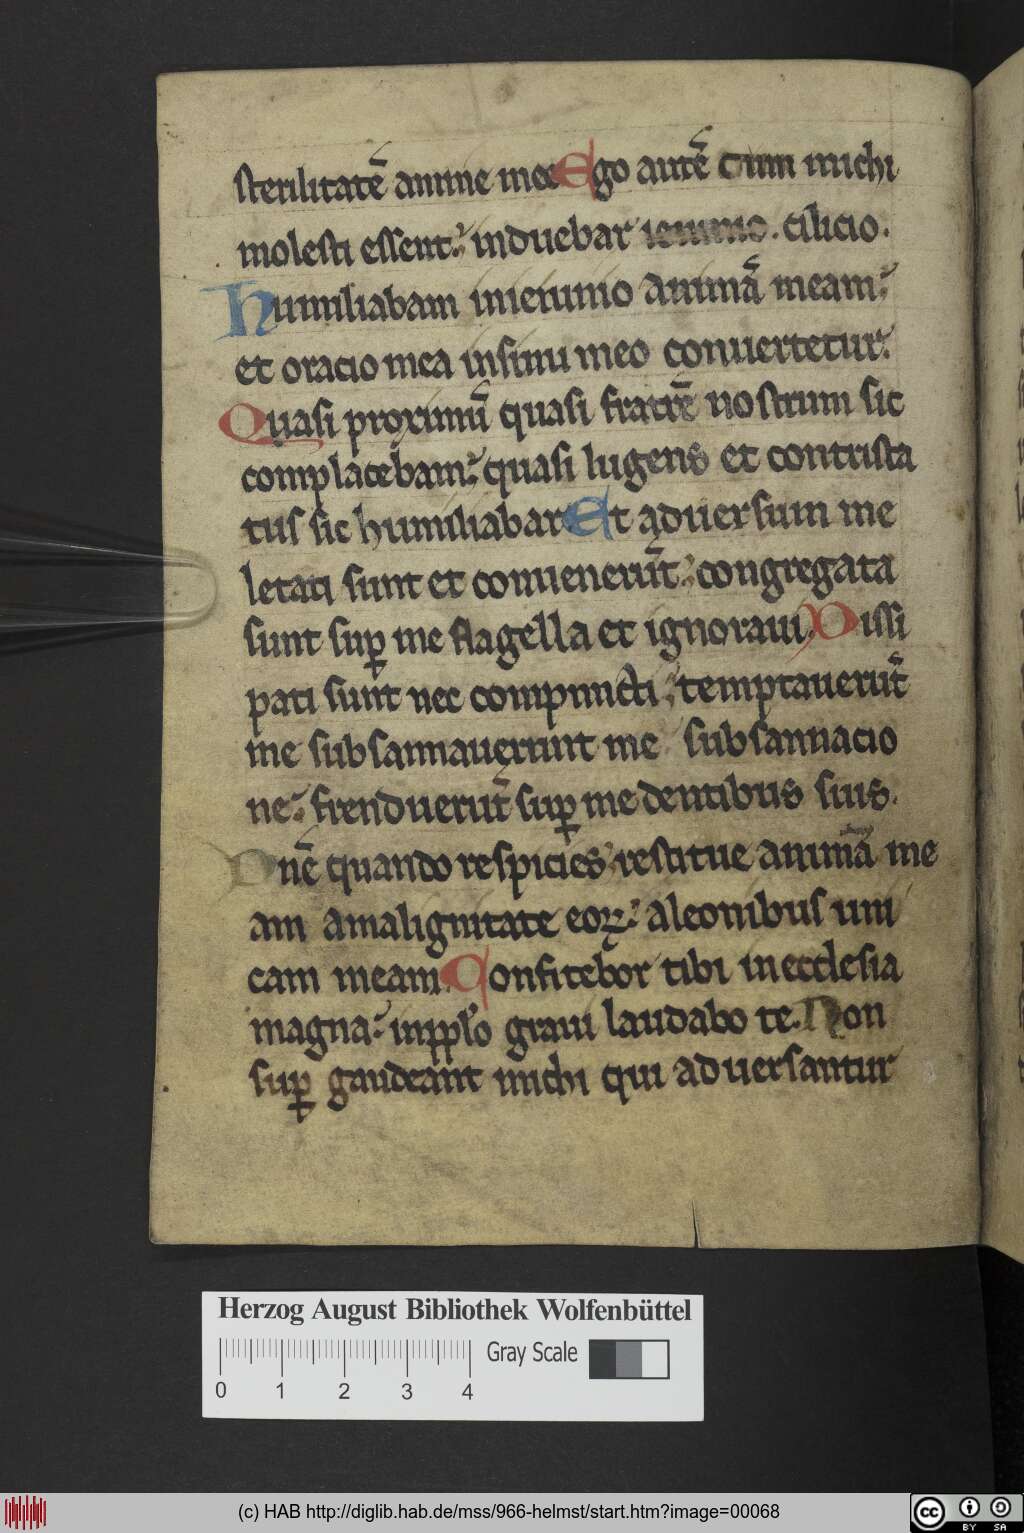 sterilitatē anime mee Ego autē cum michi
molesti essent: induebar ieiunio. cilicio.
Humiliabam inieiunio animā meam:
et oracio mea insinu meo conuertetur.
Quasi proximū quasi fratrē nostrum sic
complacebam: quasi lugens et contrista
tus sic humiliabar Et aduersum me
letati sunt et conuenerūt: congregata
sunt suꝑ me flagella et ignoraui. Dissi
pati sunt nec compuncti: temptauerūt
me subsannauerunt me subsannacio
ne: frenduerūt suꝑ me dentibus suis.
Dnē quando respicies: restitue animā me
am amalignitate eoꝝ: aleonibus uni
cam meam. Confitebor tibi inecclesia
magna: inpplo graui laudabo te. Non
suꝑ gaudeant michi qui aduersantur
Herzog August Bibliothek Wolfenbüttel
Gray Scale
0 1 2 3 4
(c) HAB http://diglib.hab.de/mss/966-helmst/start.htm?image=00068
cc BY SA